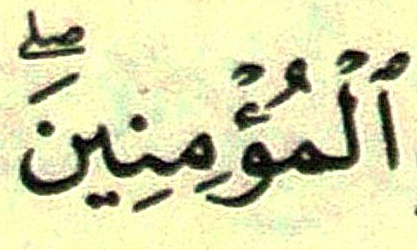 ٱلْمُؤْمِنِينَۖ